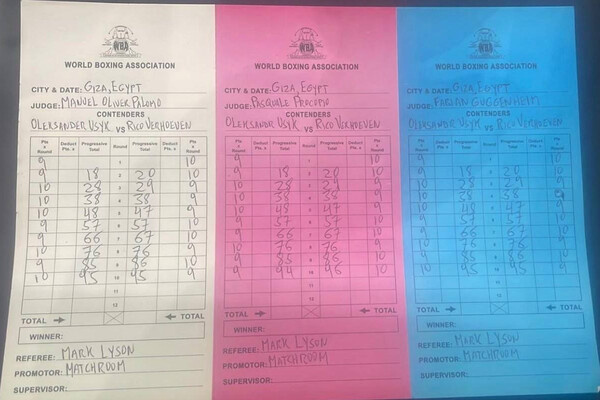 WBA
WORLD BOXING ASSOCIATION
CITY & DATE: GIZA, EGYPT
JUDGE: MANUEL OLIVER PALOMO
CONTENDERS
OLEKSANDER USYK VS RICO VERHOEVEN
Pts x Round Deduct Pts. x Progressive Total Round Progressive Total Deduct Pts. x Pts x Round
9 1 10
9 18 2 20 10
10 28 3 29 9
10 38 4 38 9
10 48 5 47 9
9 57 6 57 10
9 66 7 67 10
10 76 8 76 9
9 85 9 86 10
10 95 10 95 9
11
12
TOTAL TOTAL
WINNER:
REFEREE: MARK LYSON
PROMOTOR: MATCHROOM
SUPERVISOR:
WBA
WORLD BOXING ASSOCIATION
CITY & DATE: GIZA, EGYPT
JUDGE: PASQUALE PROCOPIO
CONTENDERS
OLEKSANDER USYK VS RICO VERHOEVEN
Pts x Round Deduct Pts. x Progressive Total Round Progressive Total Deduct Pts. x Pts x Round
9 1 10
9 18 2 20 10
10 28 3 29 9
10 38 4 38 9
10 48 5 47 9
9 57 6 57 10
9 66 7 67 10
10 76 8 76 9
9 85 9 86 10
9 94 10 96 10
11
12
TOTAL TOTAL
WINNER:
REFEREE: MARK LYSON
PROMOTOR: MATCHROOM
SUPERVISOR:
WBA
WORLD BOXING ASSOCIATION
CITY & DATE: GIZA, EGYPT
JUDGE: FABIAN GUGGENHEIM
CONTENDERS
OLEKSANDER USYK VS RICO VERHOEVEN
Pts x Round Deduct Pts. x Progressive Total Round Progressive Total Deduct Pts. x Pts x Round
9 1 10
9 18 2 20 10
10 28 3 29 9
10 38 4 38 9
10 48 5 47 9
9 57 6 57 10
9 66 7 67 10
10 76 8 76 9
9 85 9 86 10
10 95 10 95 9
11
12
TOTAL TOTAL
WINNER:
REFEREE: MARK LYSON
PROMOTOR: MATCHROOM
SUPERVISOR: